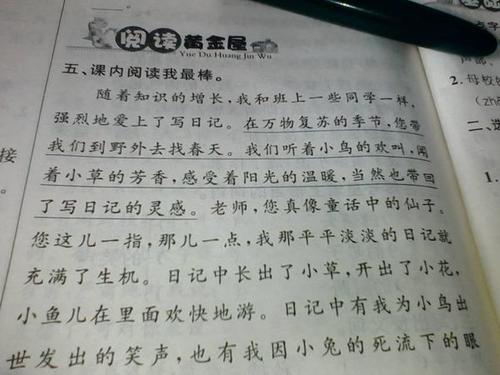 阅读黄金屋
Yue Du Huang Jin Wu
五、课内阅读我最棒。
随着知识的增长，我和班上一些同学一样，
强烈地爱上了写日记。在万物复苏的季节，您带
我们到野外去找春天。我们听着小鸟的欢叫，闻
着小草的芳香，感受着阳光的温暖，当然也带回
了写日记的灵感。老师，您真像童话中的仙子。
您这儿一指，那儿一点，我那平平淡淡的日记就
充满了生机。日记中长出了小草，开出了小花，
小鱼儿在里面欢快地游。日记中有我为小鸟出
世发出的笑声，也有我因小兔的死流下的眼
接
点字
2. 母校
1.